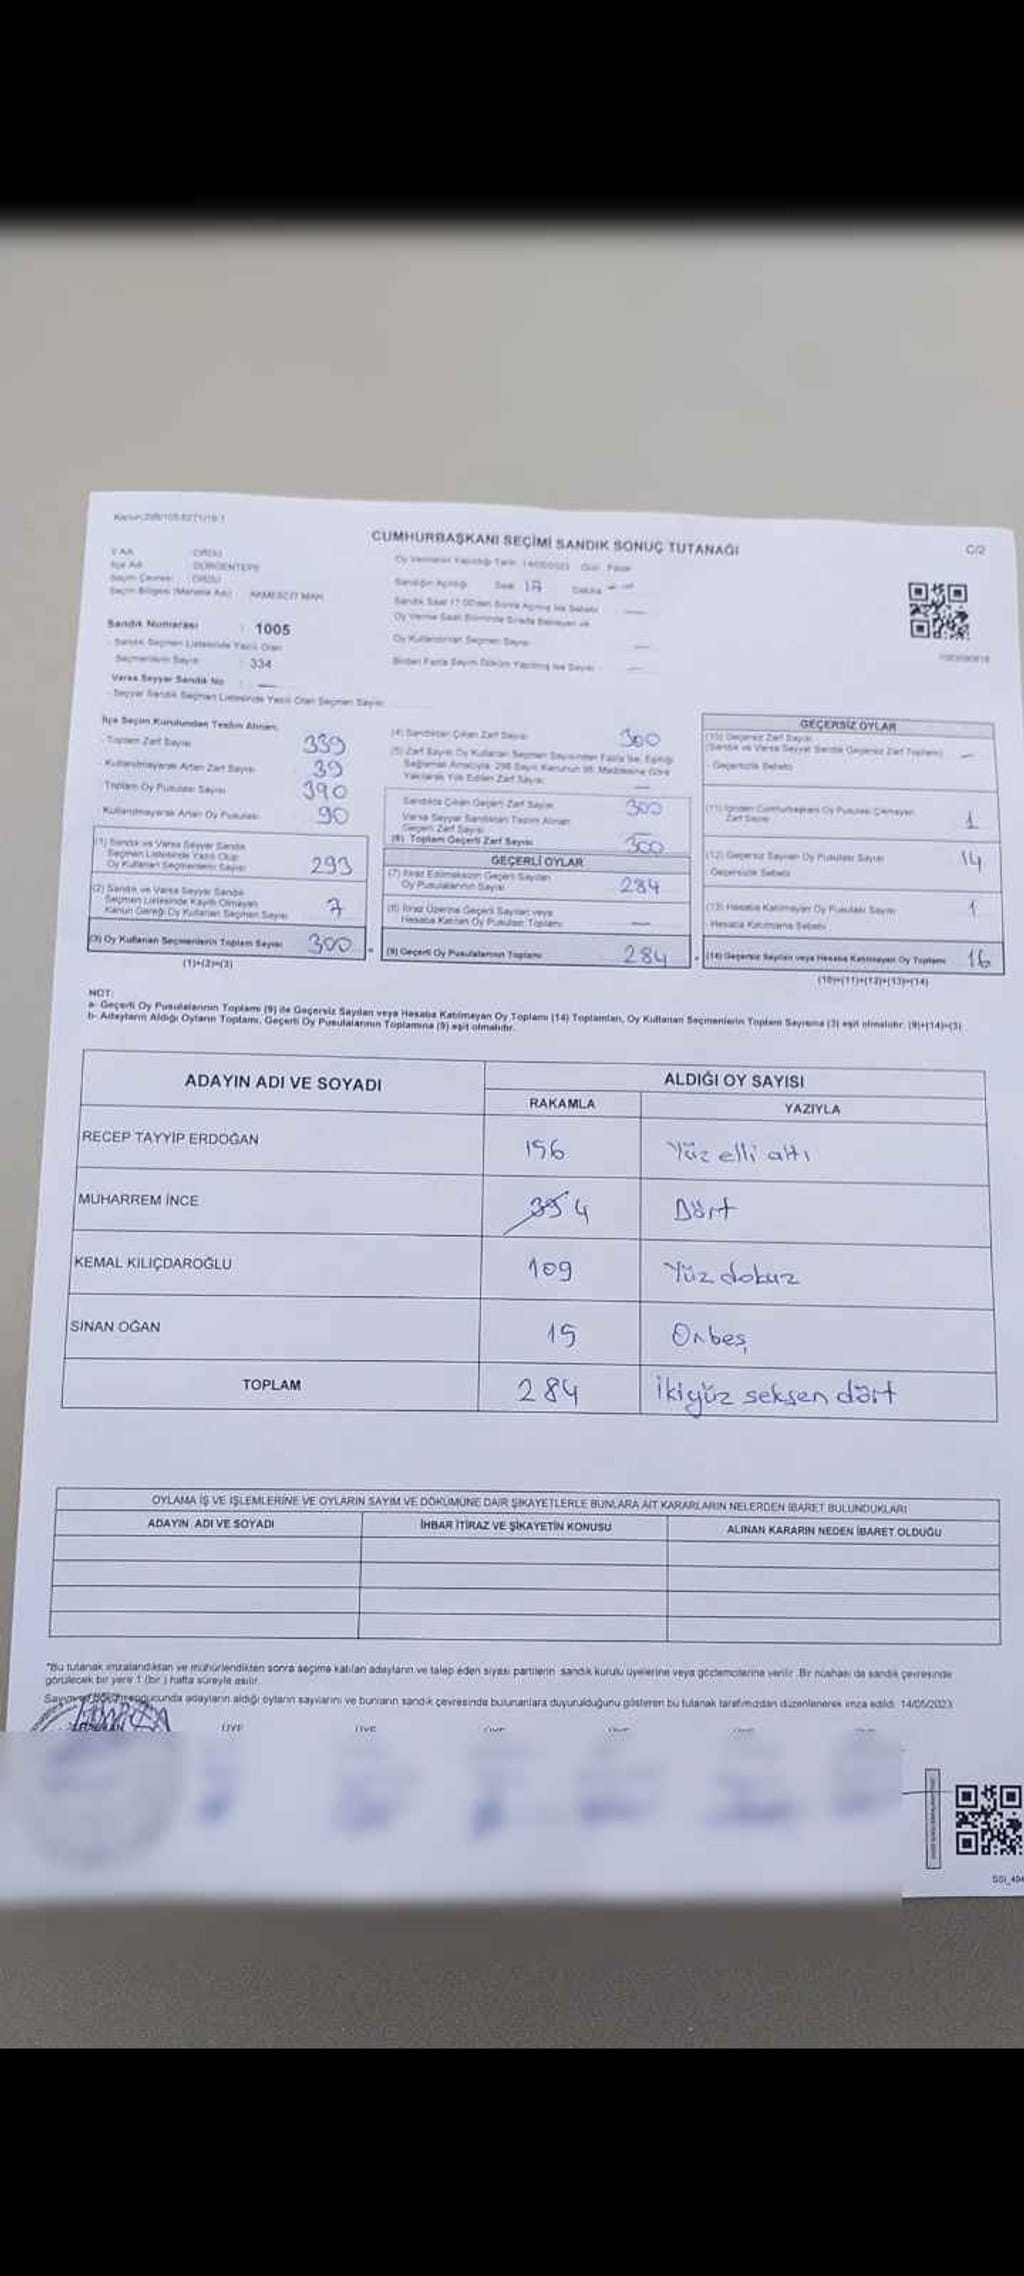 CUMHURBAŞKANI SEÇİMİ SANDIK SONUÇ TUTANAĞI
C/2
İl Adı : ORDU
İlçe Adı
Seçim Çevresi : ORDU
Seçim Bölgesi (Mahalle Adı)
Oy Vermenin Yapıldığı Tarih: 14/05/2023 Gün: Pazar
Sandığın Açıldığı Saat 17 Dakika
Sandık Saat 17:00'den Sonra Açılmış İse Sebebi
Oy Kullandırılan Seçmen Sayısı
Birden Fazla Sayım Döküm Yapılmış İse Sayısı
Sandık Numarası : 1005
Sandık Seçmen Listesinde Yazılı Olan
Seçmenlerin Sayısı : 334
Varsa Seyyar Sandık No :
- Seyyar Sandık Seçmen Listesinde Yazılı Olan Seçmen Sayısı
İlçe Seçim Kurulundan Teslim Alınan;
- Toplam Zarf Sayısı 339
- Kullanılmayarak Artan Zarf Sayısı 39
Toplam Oy Pusulası Sayısı 390
- Kullanılmayarak Artan Oy Pusulası 90
(1) Sandık ve Varsa Seyyar Sandık
Seçmen Listesinde Yazılı Olup
Oy Kullanan Seçmenlerin Sayısı 293
(2) Sandık ve Varsa Seyyar Sandık
Seçmen Listesinde Kayıtlı Olmayan
Kanun Gereği Oy Kullanan Seçmen Sayısı 7
(3) Oy Kullanan Seçmenlerin Toplam Sayısı 300
(1)+(2)=(3)
(4) Sandıktan Çıkan Zarf Sayısı 300
(5) Zarf Sayısı Oy Kullanan Seçmen Sayısından Fazla İse, Eşitliği
Sağlamak Amacıyla, 298 Sayılı Kanunun 98. Maddesine Göre
Yakılarak Yok Edilen Zarf Sayısı
Sandıkta Çıkan Geçerli Zarf Sayısı 300
Varsa Seyyar Sandıktan Teslim Alınan
Geçerli Zarf Sayısı
(6) Toplam Geçerli Zarf Sayısı 300
GEÇERLİ OYLAR
(7) İtiraz Edilmeksizin Geçerli Sayılan
Oy Pusulalarının Sayısı 284
(8) İtiraz Üzerine Geçerli Sayılan veya
Hesaba Katılan Oy Pusulası Toplamı
(9) Geçerli Oy Pusulalarının Toplamı 284
GEÇERSİZ OYLAR
(10) Geçersiz Zarf Sayısı
(Sandık ve Varsa Seyyar Sandık Geçersiz Zarf Toplamı)
- Geçersizlik Sebebi
(11) İçinden Cumhurbaşkanı Oy Pusulası Çıkmayan
Zarf Sayısı 1
(12) Geçersiz Sayılan Oy Pusulası Sayısı 14
Geçersizlik Sebebi
(13) Hesaba Katılmayan Oy Pusulası Sayısı 1
- Hesaba Katılmama Sebebi
(14) Geçersiz Sayılan veya Hesaba Katılmayan Oy Toplamı 16
(10)+(11)+(12)+(13)=(14)
NOT:
a- Geçerli Oy Pusulalarının Toplamı (9) ile Geçersiz Sayılan veya Hesaba Katılmayan Oy Toplamı (14) Toplamları, Oy Kullanan Seçmenlerin Toplam Sayısına (3) eşit olmalıdır. (9)+(14)=(3)
b- Adayların Aldığı Oyların Toplamı, Geçerli Oy Pusulalarının Toplamına (9) eşit olmalıdır.
ADAYIN ADI VE SOYADI
ALDIĞI OY SAYISI
RAKAMLA YAZIYLA
RECEP TAYYİP ERDOĞAN 156 Yüz elli altı
MUHARREM İNCE 4 Dört
KEMAL KILIÇDAROĞLU 109 Yüz dokuz
SİNAN OĞAN 15 Onbeş
TOPLAM 284 İkiyüz seksen dört
OYLAMA İŞ VE İŞLEMLERİNE VE OYLARIN SAYIM VE DÖKÜMÜNE DAİR ŞİKAYETLERLE BUNLARA AİT KARARLARIN NELERDEN İBARET BULUNDUKLARI
ADAYIN ADI VE SOYADI İHBAR İTİRAZ VE ŞİKAYETİN KONUSU ALINAN KARARIN NEDEN İBARET OLDUĞU
*Bu tutanak imzalandıktan ve mühürlendikten sonra seçime katılan adayların ve talep eden siyasi partilerin sandık kurulu üyelerine veya gözlemcilerine verilir. Bir nüshası da sandık çevresinde
görülecek bir yere 1 (bir) hafta süreyle asılır.
sonucunda adayların aldığı oyların sayılarını ve bunların sandık çevresinde bulunanlara duyurulduğunu gösteren bu tutanak tarafımızdan düzenlenerek imza edildi. 14/05/2023
ÜYE ÜYE ÜYE ÜYE